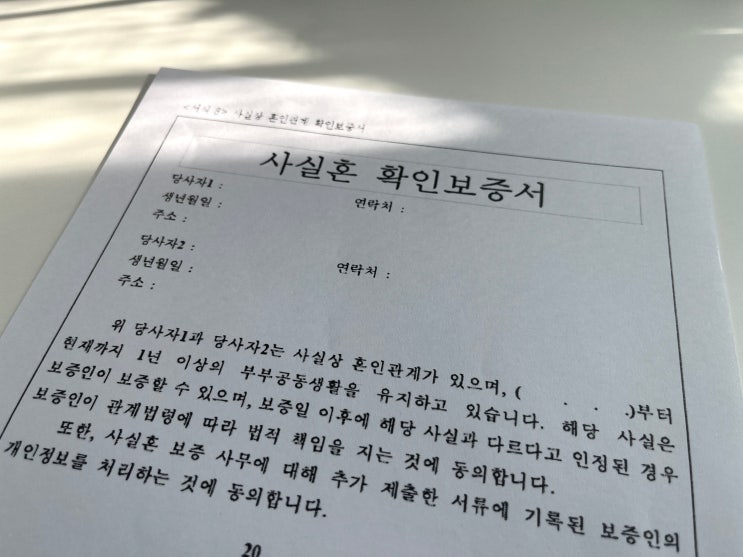 사실상 혼인관계 확인보증서
사실혼 확인보증서
당사자1 :
생년월일 : 연락처 :
주소 :
당사자2 :
생년월일 : 연락처 :
주소 :
위 당사자1과 당사자2는 사실상 혼인관계가 있으며, ( . . .)부터
현재까지 1년 이상의 부부공동생활을 유지하고 있습니다. 해당 사실은
보증인이 보증할 수 있으며, 보증일 이후에 해당 사실과 다르다고 인정된 경우
보증인이 관계법령에 따라 법적 책임을 지는 것에 동의합니다.
또한, 사실혼 보증 사무에 대해 추가 제출한 서류에 기록된 보증인의
개인정보를 처리하는 것에 동의합니다.
20